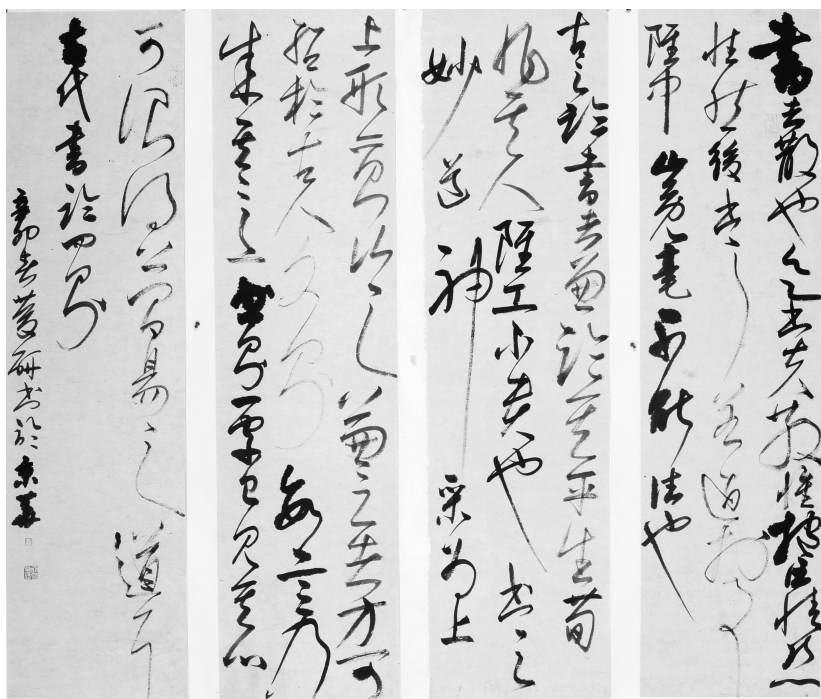 書者散也欲書先散懷抱任情恣
性然後書之若迫於事
雖中山兔毫不能佳也
古之論書者兼論其平生苟
非其人雖工不貴也書之
妙道神采為上
上形質次之兼之者方可
紹於古人文則數言乃
成其意書則一字已見其心
可謂得簡易之道
古代書論四則
辛卯春研書於京華